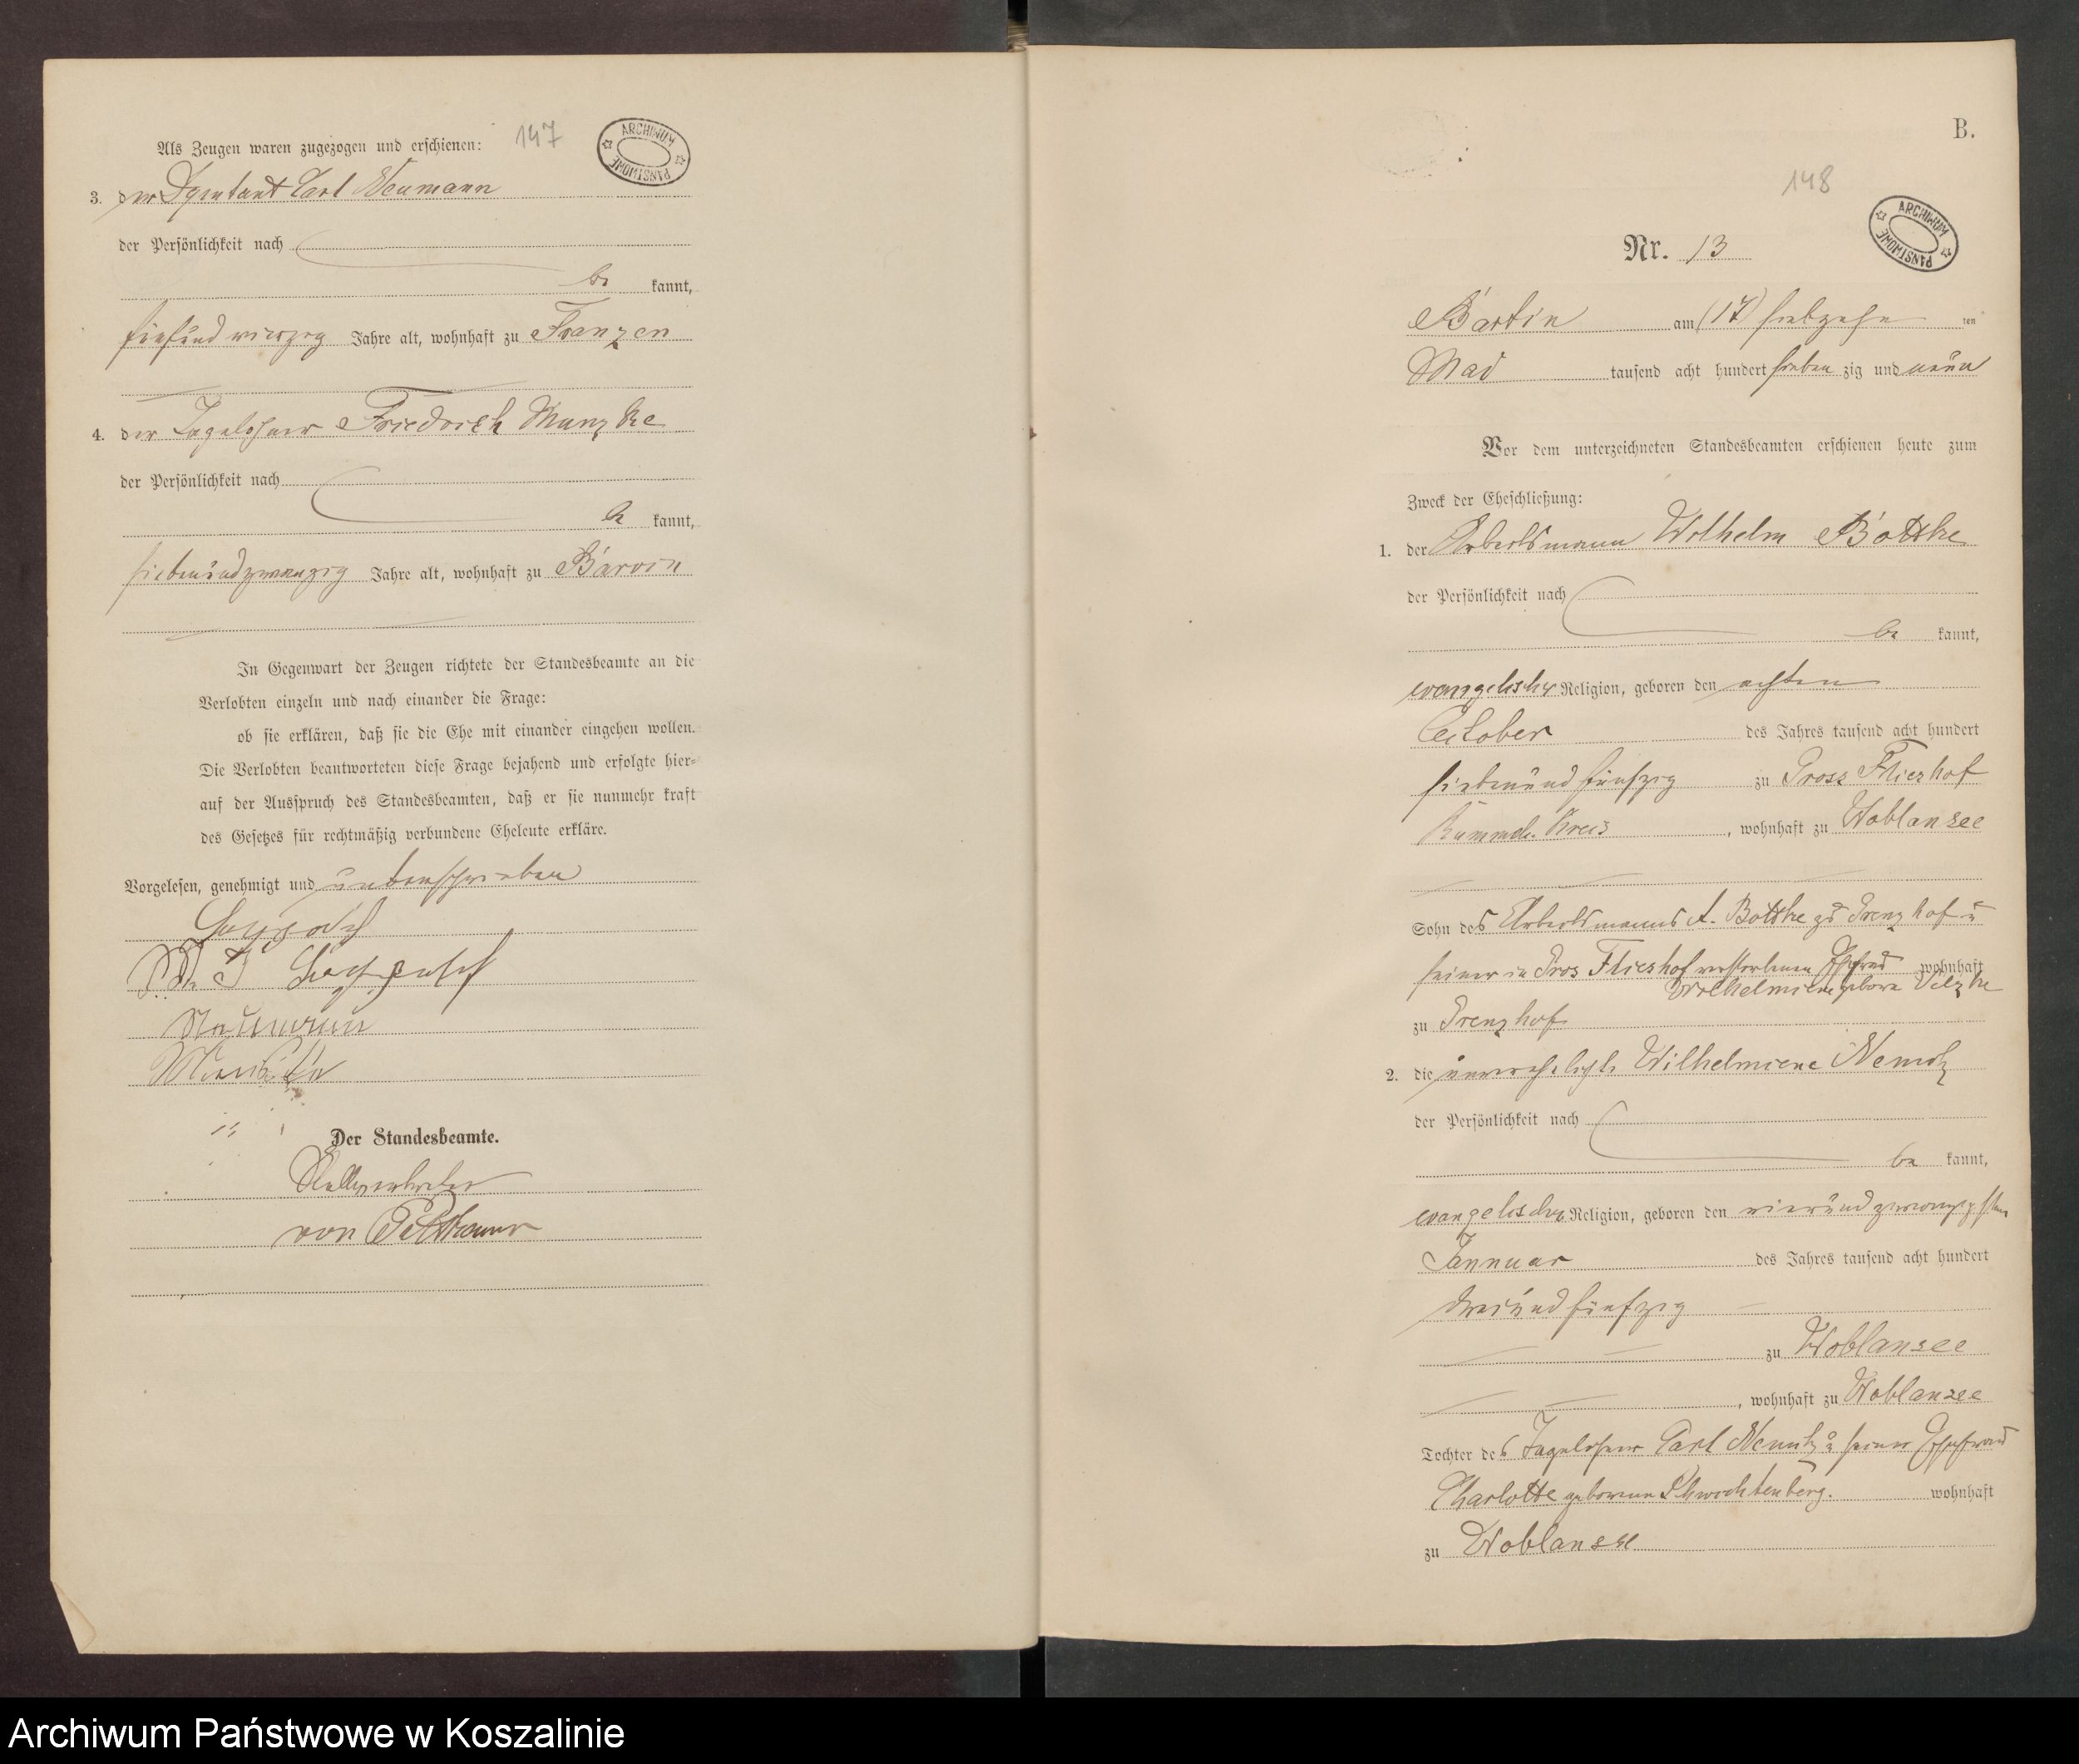 147
ARCHIWUM PAŃSTWOWE
Als Zeugen waren zugezogen und erschienen:
3. der Deputant Carl Neumann
der Persönlichkeit nach
be kannt,
fünfundvierzig Jahre alt, wohnhaft zu Franzen
4. der Tagelöhner Friedrich Manzke
der Persönlichkeit nach
be kannt,
siebenundzwanzig Jahre alt, wohnhaft zu Barvin
In Gegenwart der Zeugen richtete der Standesbeamte an die
Verlobten einzeln und nach einander die Frage:
ob sie erklären, daß sie die Ehe mit einander eingehen wollen.
Die Verlobten beantworteten diese Frage bejahend und erfolgte hier-
auf der Ausspruch des Standesbeamten, daß er sie nunmehr kraft
des Gesetzes für rechtmäßig verbundene Eheleute erkläre.
Vorgelesen, genehmigt und unterschrieben
Neumann
Manzke
Der Standesbeamte.
Stellvertreter
von Puttkamer
B.
148
ARCHIWUM PAŃSTWOWE
Nr. 13
Bartin am (17) siebzehn ten
Mai tausend acht hundert sieben zig und neun
Vor dem unterzeichneten Standesbeamten erschienen heute zum
Zweck der Eheschließung:
1. der Arbeitsmann Wilhelm Bottke
der Persönlichkeit nach
be kannt,
evangelischer Religion, geboren den achten
October des Jahres tausend acht hundert
siebenundfünfzig zu Gross Flieshof
Rummels. Kreis, wohnhaft zu Woblansee
Sohn des Arbeitsmanns A. Bottke zu Grenzhof u
seiner in Gros Flieshof verstorbenen Ehefrau wohnhaft
Wilhelmiene geborne
zu Grenzhof
2. die unverehelichte Wilhelmiene Nemitz
der Persönlichkeit nach
be kannt,
evangelischer Religion, geboren den vierundzwanzigsten
Jannuar des Jahres tausend acht hundert
dreiundfünfzig
zu Woblansee
, wohnhaft zu Woblansee
Tochter des Tagelöhner Carl Nemitz u seiner Ehefrau
Charlotte geborenen Schwochtenberg. wohnhaft
zu Woblansee
Archiwum Państwowe w Koszalinie